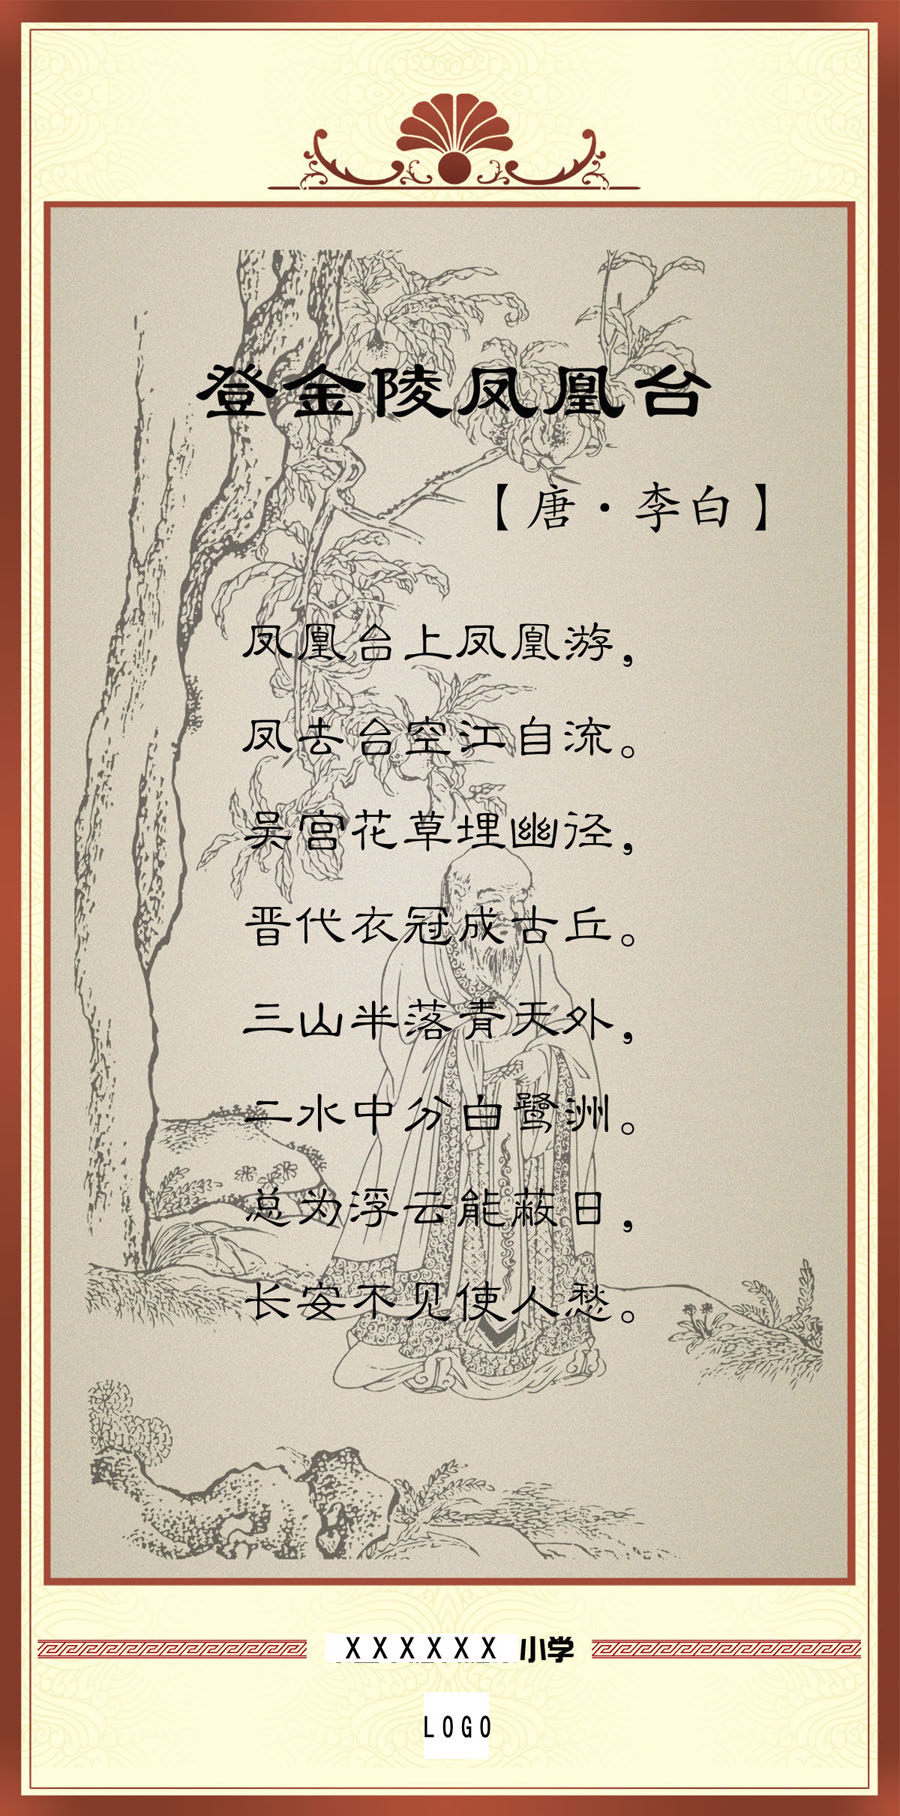 登金陵凤凰台
【唐·李白】
凤凰台上凤凰游，
凤去台空江自流。
吴宫花草埋幽径，
晋代衣冠成古丘。
三山半落青天外，
二水中分白鹭洲。
总为浮云能蔽日，
长安不见使人愁。
XXXXXX 小学
LOGO